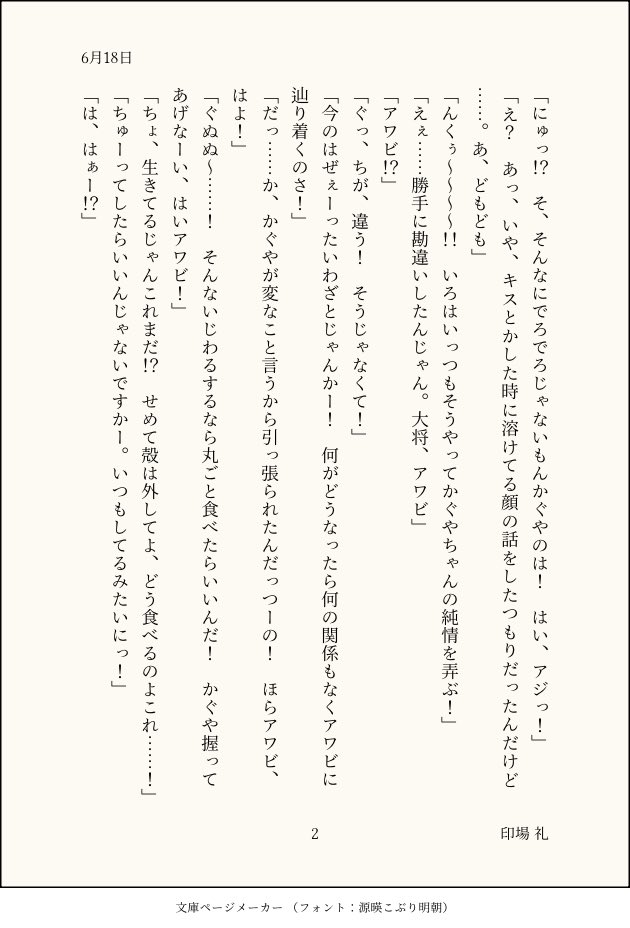 6月18日
「にゅっ!?　そ、そんなにでろでろじゃないもんかぐやのは！　はい、アジっ！」
「え？　あっ、いや、キスとかした時に溶けてる顔の話をしたつもりだったんだけど
……。あ、どもども」
「んくぅ〜〜〜〜!!　いろはいっつもそうやってかぐやちゃんの純情を弄ぶ！」
「えぇ……勝手に勘違いしたんじゃん。大将、アワビ」
「アワビ!?」
「ぐっ、ちが、違う！　そうじゃなくて！」
「今のはぜぇーったいわざとじゃんかー！　何がどうなったら何の関係もなくアワビに
辿り着くのさ！」
「だっ……か、かぐやが変なこと言うから引っ張られたんだっつーの！　ほらアワビ、
はよ！」
「ぐぬぬ〜……！　そんないじわるするなら丸ごと食べたらいいんだ！　かぐや握って
あげなーい、はいアワビ！」
「ちょ、生きてるじゃんこれまだ!?　せめて殻は外してよ、どう食べるのよこれ……！」
「ちゅーってしたらいいんじゃないですかー。いつもしてるみたいにっ！」
「は、はぁー!?」
2
印場 礼
文庫ページメーカー （フォント：源暎こぶり明朝）